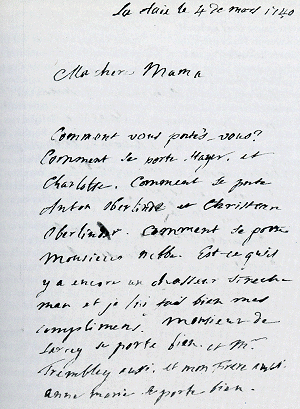 La Haie le 4 de mars 1740
Ma chere Mama
Comment vous portés-vous?
Comment se porte et
Charlotte. Comment se porte
Anton Oberlinde et Christienn
Oberlinder. Comment se porte
Monsieur Est-ce qu'il
y a encore un
man et je lui fais bien mes
complimens. Monsieur de
se porte bien. et Mr
Trembley aussi. et mon Frere aussi.
anne marie se porte bien.